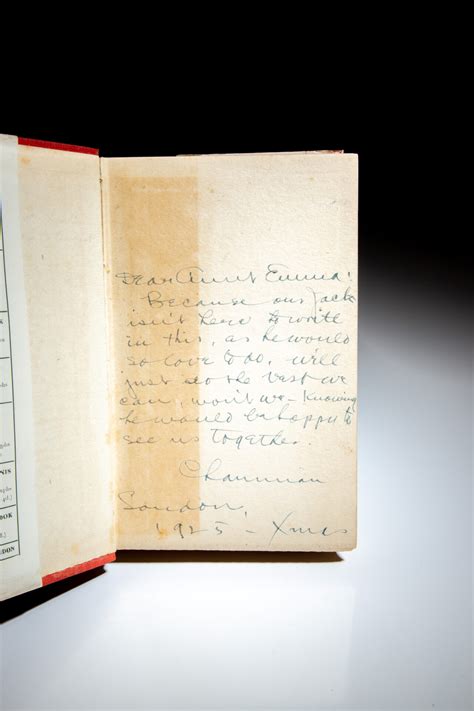 Dear Aunt Emma:
Because our Jack
isn't here to write
in this, as he would
so love to do, we'll
just do the best we
can, won't we - Knowing
he would be happy to
see us together.
Charmian
London,
1925 - Xmas
NTS
DOK
DON